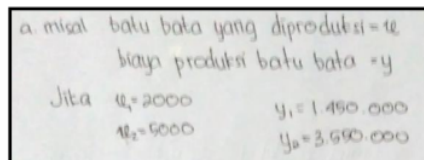 a. misal batu bata yang diproduksi = x
biaya produksi batu bata = y
Jika x₁ = 2000 y₁ = 1.450.000
x₂ = 5000 y₂ = 3.550.000